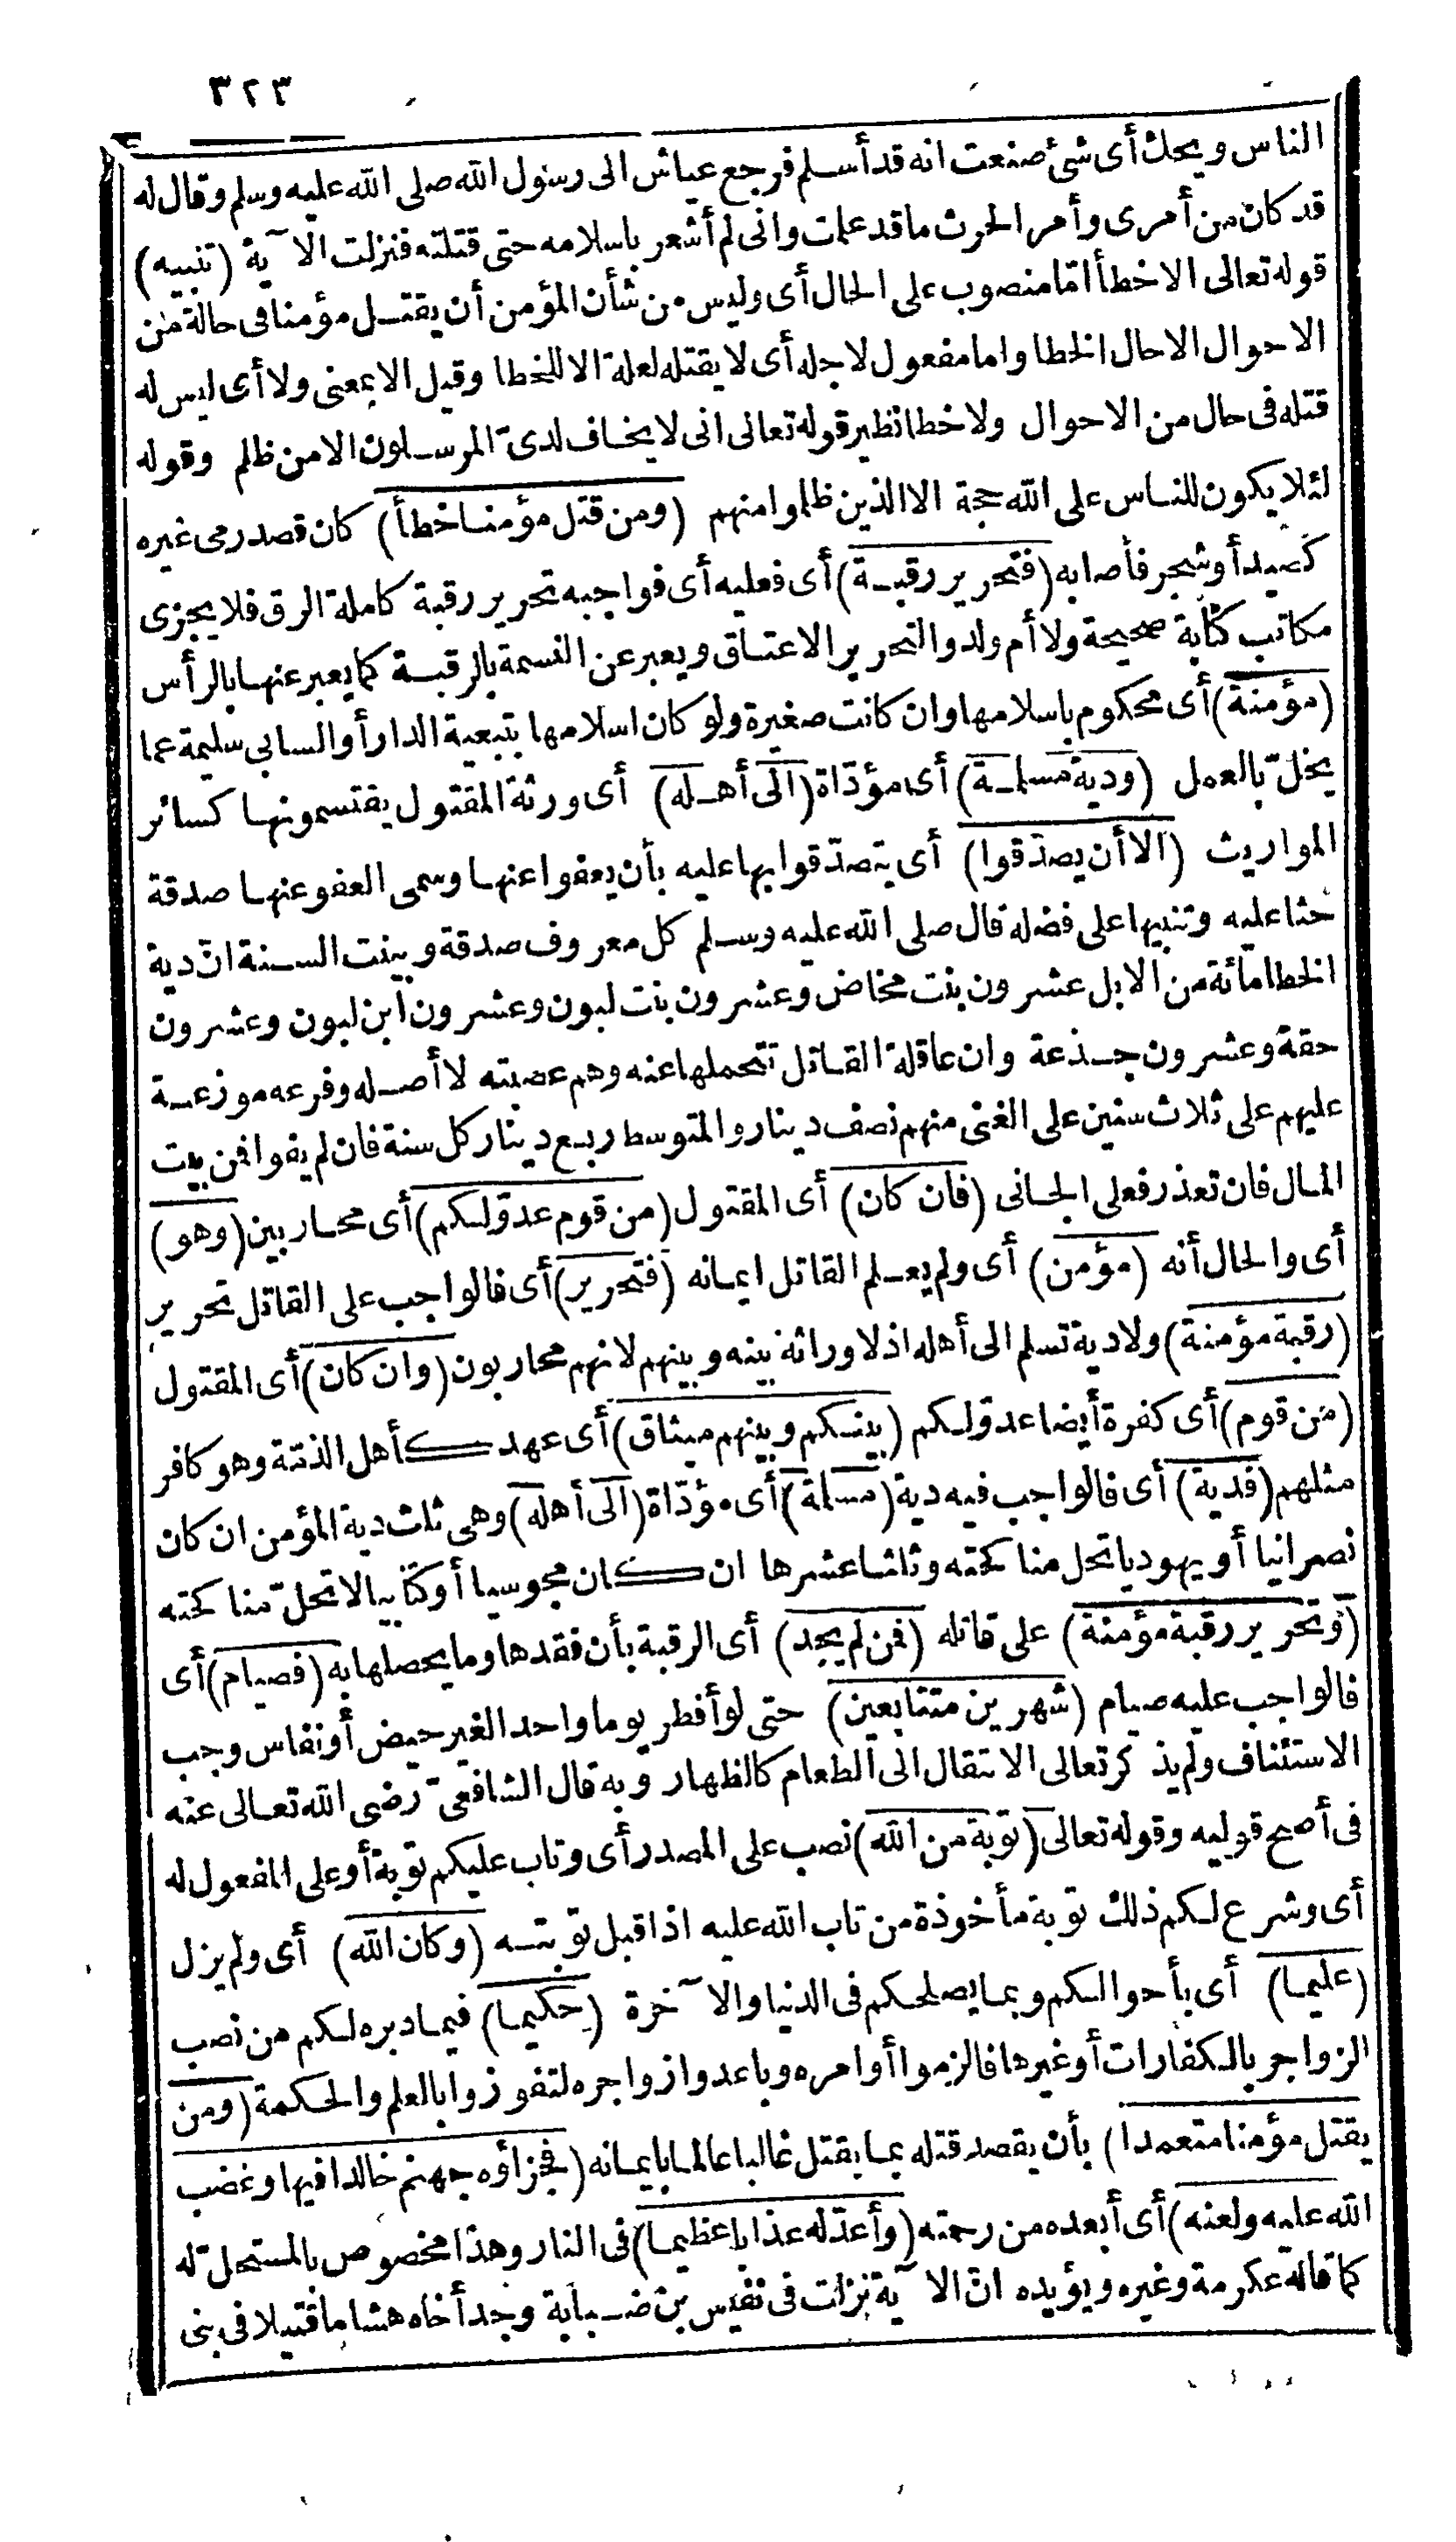 ٣٢٣
الناس ويحك أى شئ صنعت انه قد أسلم فرجع عياش الى رسول الله صلى الله عليه وسلم وقال له
قد كان من أمرى وأمر الحرث ما قد علمت وانى لم أشعر باسلامه حتى قتلته فنزلت الآية (تنبيه)
قوله تعالى الا خطأ امّا منصوب على الحال أى وليس من شأن المؤمن أن يقتل مؤمنا فى حالة من
الاحوال الا حال الخطا واما مفعول لاجله أى لا يقتله لعلة الا للخطا وقيل الا بمعنى ولا أى ليس له
قتله فى حال من الاحوال ولا خطا نظير قوله تعالى انى لا يخاف لدىّ المرسلون الا من ظلم وقوله
لئلا يكون للناس على الله حجة الا الذين ظلموا منهم (ومن قتل مؤمنا خطأ) كان قصد رمى غيره
كصيد أو شجر فأصابه (فتحرير رقبة) أى فعليه أى فواجبه تحرير رقبة كاملة الرق فلا يجزى
مكاتب كتابة صحيحة ولا أم ولد والتحرير الاعتاق ويعبر عن النسمة بالرقبة كما يعبر عنها بالرأس
(مؤمنة) أى محكوم باسلامها وان كانت صغيرة ولو كان اسلامها بتبعية الدار أو السابى سليمة عما
يخلّ بالعمل (ودية مسلمة) أى مؤدّاة (الى أهله) أى ورثة المقتول يقتسمونها كسائر
المواريث (الا أن يصدّقوا) أى يتصدّقوا بها عليه بأن يعفوا عنها وسمى العفو عنها صدقة
حثا عليه وتنبيها على فضله قال صلى الله عليه وسلم كل معروف صدقة وبينت السنة انّ دية
الخطا مائة من الابل عشرون بنت مخاض وعشرون بنت لبون وعشرون ابن لبون وعشرون
حقة وعشرون جذعة وان عاقلة القاتل تتحملها عنه وهم عصبته لا أصله وفرعه موزعة
عليهم على ثلاث سنين على الغنى منهم نصف دينار والمتوسط ربع دينار كل سنة فان لم يفوا فمن بيت
المال فان تعذر فعلى الجانى (فان كان) أى المقتول (من قوم عدوّ لكم) أى محاربين (وهو)
أى والحال أنه (مؤمن) أى ولم يعلم القاتل ايمانه (فتحرير) أى فالواجب على القاتل تحرير
(رقبة مؤمنة) ولا دية تسلم الى أهله اذ لا وراثة بينه وبينهم لانهم محاربون (وان كان) أى المقتول
(من قوم) أى كفرة أيضا عدوّ لكم (بينكم وبينهم ميثاق) أى عهد كأهل الذمّة وهو كافر
مثلهم (فدية) أى فالواجب فيه دية (مسلمة) أى مؤدّاة (الى أهله) وهى ثلث دية المؤمن ان كان
نصرانيا أو يهوديا تحل مناكحته وثلثا عشرها ان كان مجوسيا أو كتابيا لا تحلّ مناكحته
(وتحرير رقبة مؤمنة) على قاتله (فمن لم يجد) أى الرقبة بأن فقدها وما يحصلها به (فصيام) أى
فالواجب عليه صيام (شهرين متتابعين) حتى لو أفطر يوما واحدا لغير حيض أو نفاس وجب
الاستئناف ولم يذكر تعالى الانتقال الى الطعام كالظهار وبه قال الشافعىّ رضى الله تعالى عنه
فى أصح قوليه وقوله تعالى (توبة من الله) نصب على المصدر أى وتاب عليكم توبة أو على المفعول له
أى وشرع لكم ذلك توبة مأخوذة من تاب الله عليه اذا قبل توبته (وكان الله) أى ولم يزل
(عليما) أى بأحوالكم وبما يصلحكم فى الدنيا والآخرة (حكيما) فيما دبره لكم من نصب
الزواجر بالكفارات أو غيرها فالزموا أوامره وباعدوا زواجره لتفوزوا بالعلم والحكمة (ومن
يقتل مؤمنا متعمدا) بأن يقصد قتله بما يقتل غالبا عالما بايمانه (فجزاؤه جهنم خالدا فيها وغضب
الله عليه ولعنه) أى أبعده من رحمته (وأعدّ له عذابا عظيما) فى النار وهذا مخصوص بالمستحلّ له
كما قاله عكرمة وغيره ويؤيده انّ الآية نزلت فى نفيس بن ضبابة وجد أخاه هشاما قتيلا فى بنى